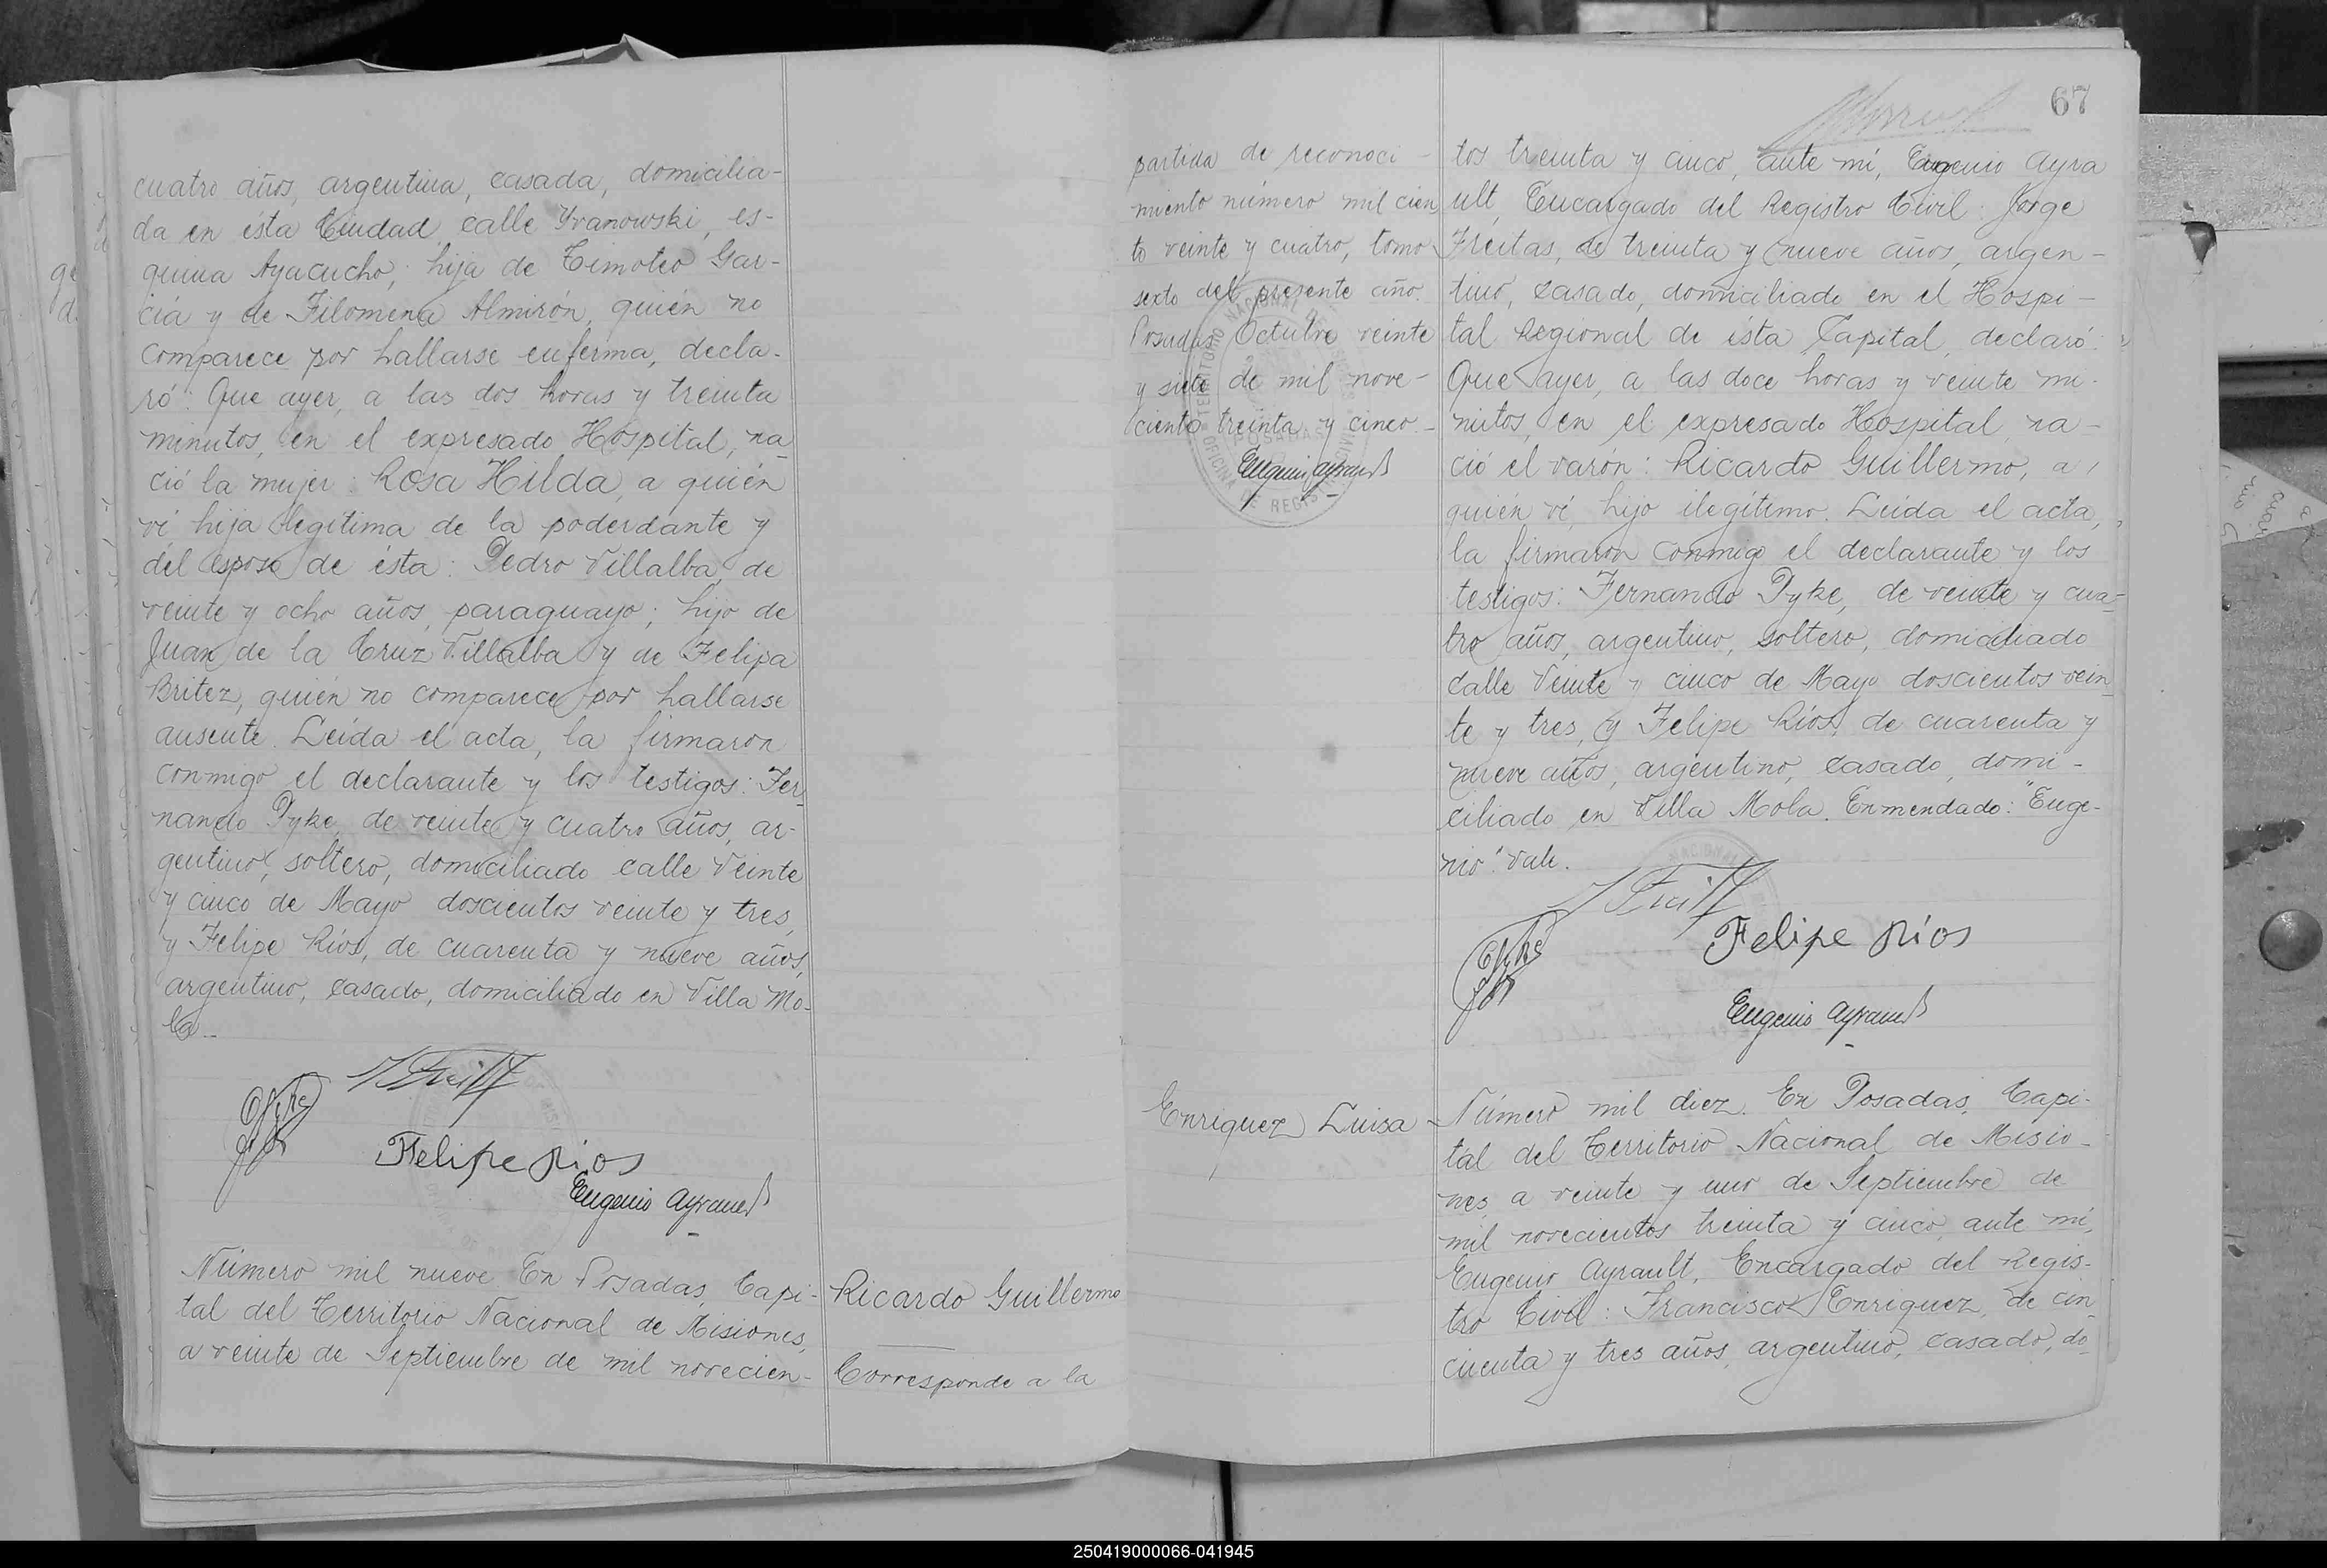 cuatro años, argentina, casada, domicilia-
da en ésta Ciudad calle Yvanowski, es-
quina Ayacucho; hija de Timoteo Gar-
cia y de Filomena Almirón, quién no
comparece por hallarse enferma, decla-
ró: Que ayer, a las dos horas y treinta
minutos, en el expresado Hospital, na
ció la mujer: Rosa Hilda, a quién
ví, hija legítima de la poderdante y
del esposo de ésta: Pedro Villalba, de
veinte y ocho años, paraguayo; hijo de
Juan de la Cruz Villalba y de Felipa
Britez, quién no comparece por hallarse
ausente. Leída el acta, la firmaron
conmigo el declarante y los testigos: Fer
nando Dyke, de veinte y cuatro años, ar-
gentino, soltero, domiciliado calle Veinte
y cinco de Mayo doscientos veinte y tres,
y Felipe Ríos, de cuarenta y nueve años,
argentino, casado, domiciliado en Villa Mo-
la.-
Felipe Rios
Eugenio Ayrault
Número mil nueve. En Posadas, Capi-
tal del Territorio Nacional de Misiones,
a veinte de Septiembre de mil novecien-
Ricardo Guillermo
Corresponde a la
67
partida de reconoci-
miento número mil cien
to veinte y cuatro, tomo
sexto del presente año.
Posadas, Octubre veinte
y siete de mil nove-
ciento treinta y cinco.-
Eugenio Ayrault
tos treinta y cinco, ante mí, Eugenio Ayra
ult, Encargado del Registro Civil: Jorge
Freitas, de treinta y nueve años, argen-
tino, casado, domiciliado en el Hospi-
tal Regional de ésta Capital, declaró:
Que ayer, a las doce horas y veinte mi-
nutos, en el expresado Hospital, na-
ció el varón: Ricardo Guillermo, a
quién ví, hijo ilegítimo. Leída el acta,
la firmaron conmigo el declarante y los
testigos: Fernando Dyke, de veinte y cua-
tro años, argentino, soltero, domiciliado
calle Veinte y cinco de Mayo doscientos vein
te y tres, y Felipe Ríos, de cuarenta y
nueve años, argentino, casado, domi-
ciliado en Villa Mola. Enmendado: "Euge-
nio". Vale.
Felipe Rios
Eugenio Ayrault
Enriquez Luisa
Número mil diez. En Posadas, Capi-
tal del Territorio Nacional de Misio-
nes, a veinte y uno de Septiembre de
mil novecientos treinta y cinco, ante mí,
Eugenio Ayrault, Encargado del Regis-
tro Civil: Francisco Enriquez, de cin
cuenta y tres años, argentino, casado, do
250419000066-041945